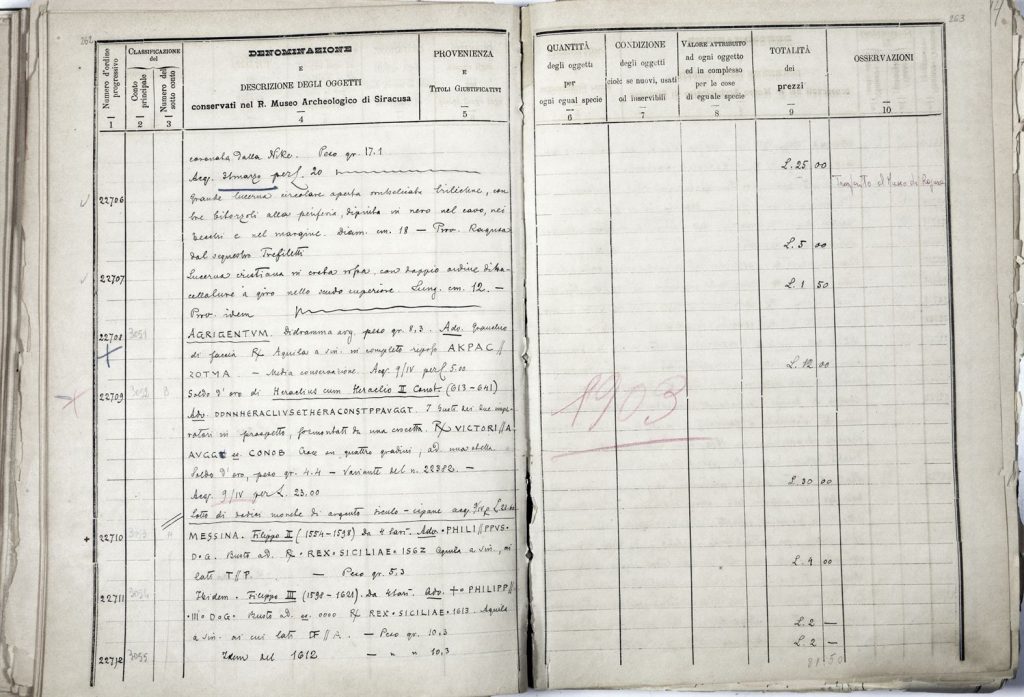 262
Numero d'ordine progressivo
CLASSIFICAZIONE del
Conto principale
Numero del sotto conto
DENOMINAZIONE
E
DESCRIZIONE DEGLI OGGETTI
conservati nel R. Museo Archeologico di Siracusa
PROVENIENZA
E
TITOLI GIUSTIFICATIVI
1
2
3
4
5
coronata dalla Nike. Peso gr. 17.1
Acq. 31 marzo per £. 20
22706
Grande lucerna circolare aperta ombelicata trilicne, con
tre bitorzoli alla periferia, dipinta in nero nel cavo, nei
becchi e nel margine. Diam. cm. 18 — Prov. Ragusa
dal sequestro Trefiletti
22707
Lucerna cristiana in creta rossa, con doppio ordine di
cellature a giro nello scudo superiore. Lung. cm. 12. —
Prov. idem
22708 3091
AGRIGENTVM. Didramma arg. peso gr. 8,3. Adv. Granchio
di faccia R/ Aquila a sin. in completo riposo AKPAC//
ZOTMA. — Media conservazione. Acq. 9/IV per £ 5.00
22709 3092
Soldo d'oro di Heraclius cum Heraclio II Const. (613-641)
Adv. DDNNHERACLIVSETHERACONSTPPAVGGT. I busti dei due impe-
ratori in prospetto, sormontati da una crocetta. R/ VICTORI//A
AVGGE es. CONOB Croce su quattro gradini, ad. una stella.
Soldo d'oro, peso gr. 4.4 — Variante del n. 22382. —
Acq. 9/IV per £. 23.00
Lotto di dodici monete di argento siculo-ispane acq. 9/IV p.
22710 3093
MESSINA. Filippo II (1554-1598) Da 4 tarì. Adv. • PHILI//PPVS •
D•G. Busto ad. R/ • REX•SICILIAE•1562 Aquila a sin., ai
lati T//P. — Peso gr. 5,3
22711 3094
Ibidem. Filippo III (1598-1621). Da 4 tarì. Adv. +• PHILIPP//
•III•D•G• Busto ad. es. oooo R/ REX•SICILIAE•1613. Aquila
a sin. ai cui lati DF//A. — Peso gr. 10,3
22712 3095
Idem del 1612 — " " 10,3
263
QUANTITÀ
degli oggetti
per
ogni egual specie
CONDIZIONE
degli oggetti
cioè: se nuovi, usati
od inservibili
VALORE ATTRIBUITO
ad ogni oggetto
ed in complesso
per le cose
di eguale specie
TOTALITÀ
dei
prezzi
OSSERVAZIONI
6
7
8
9
10
L. 25 00
Trasferito al Museo di Ragusa
L. 5 00
L. 1 50
L. 12 00
1903
L. 30 00
L. 4 00
L. 2 —
L. 2 —
81.50